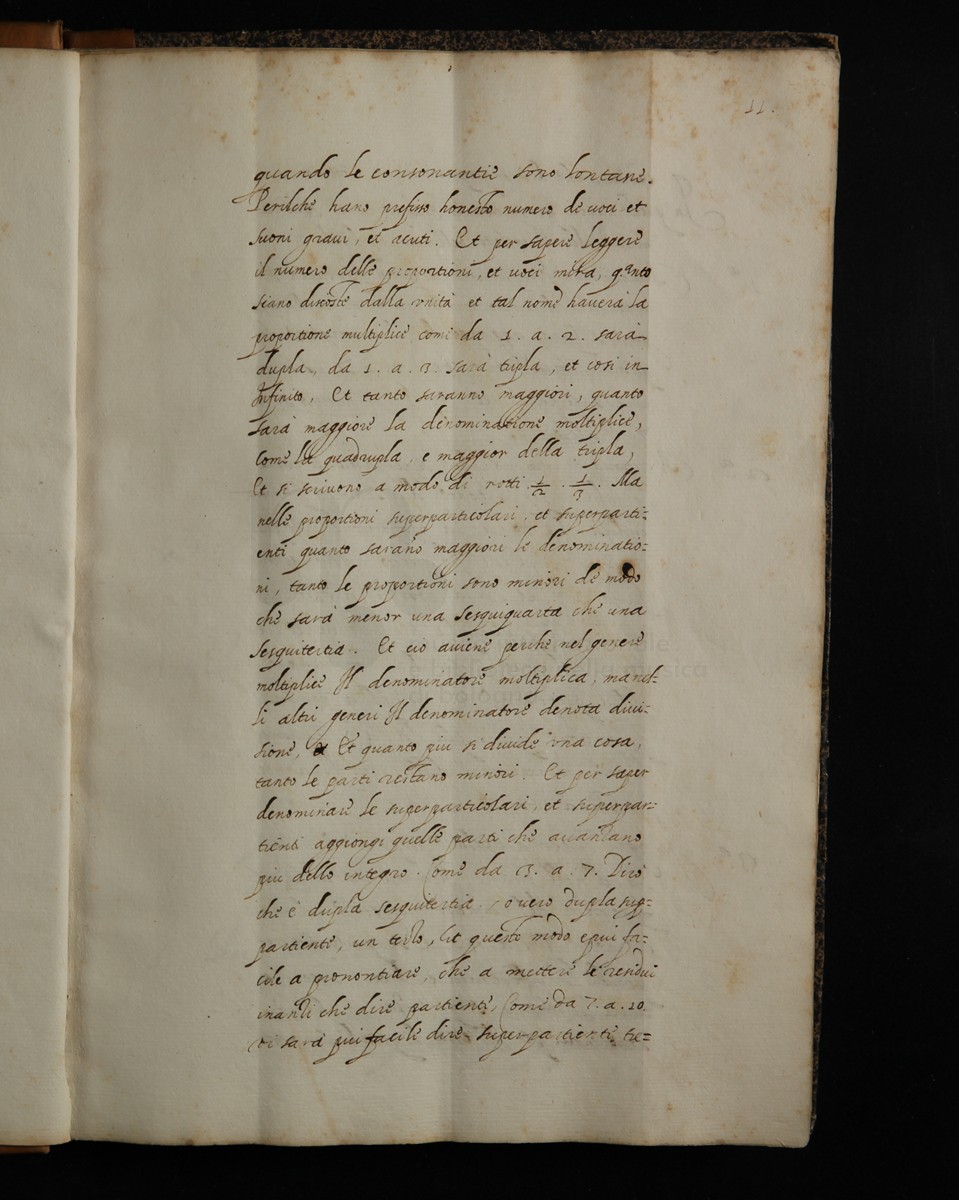 11.
quando le consonantie sono lontane.
Perilche hano prefisso honesto numero de uoci et
suoni graui, et acuti. Et per sapere leggere
il numero delle proportioni, et uoci mira, q.anto
siano discoste dalla vnità et tal nome hauerà la
proportione multiplice come da 1. a. 2. sarà
dupla, da 1. a. 3. sarà tripla, et cosi in
infinito. Et tanto saranno maggiori, quanto
sarà maggiore la denominatione moltiplice,
Come la quadrupla e maggior della tripla,
Et si scriuono a modo di rotti 1/2 . 1/3 . Ma
nelle proportioni superparticolari et superparti=
enti quanto sarano maggiori le denominatio=
ni, tanto le proportioni sono minori de modo
che sarà menor una sesquiquarta che una
sesquitertia. Et ciò auiene perche nel genere
moltiplice Il denominatore moltiplica, ma nel=
li altri generi Il denominatore denota diui=
sione, Et quanto piu si diuide vna cosa,
tanto le parti restano minori. Et per saper
denominare le superparticolari, et superpar=
tienti aggiongi quelle parti che auanzano
piu dello integro. Come da 3. a. 7. Diro
che è dupla sesquitertia, ouero dupla sup=
partiente, un terzo, Et questo modo e piu fa=
cile a prononciare, che a mettere le residui
inanzi che dire partiente, Come da 7. a. 10.
vi sarà piu facile dire superpartiente tre=